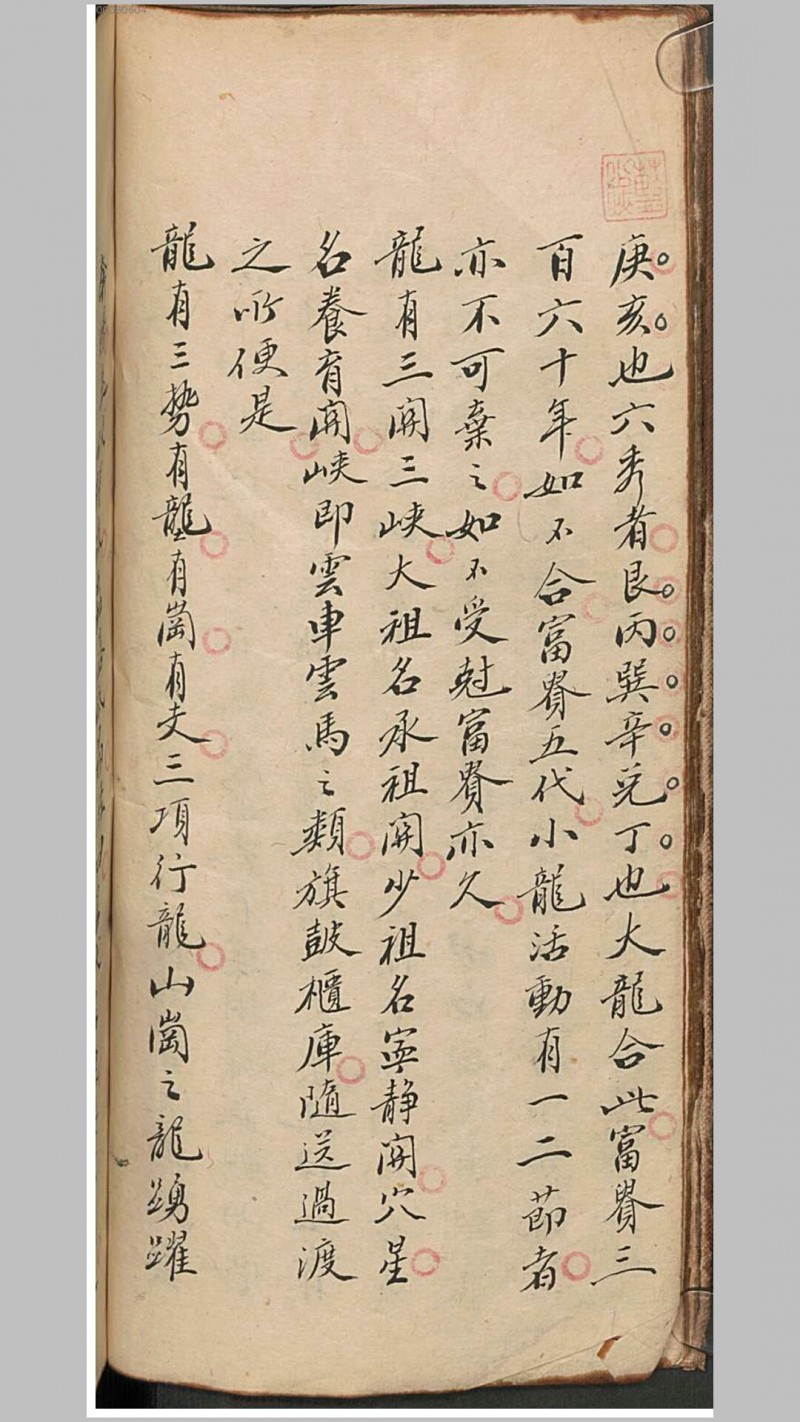 庚亥也六秀者艮丙巽辛兌丁也大龍合此富貴三
百六十年如不合富貴五代小龍活動有一二節者
亦不可棄之如不受尅富貴亦久
龍有三関三峽大祖名承祖関少祖名寧静関穴星
名養育関峽即雲車雲馬之類旗鼓櫃庫隨送過渡
之所便是
龍有三勢有壠有崗有支三項行龍山崗之龍踴躍